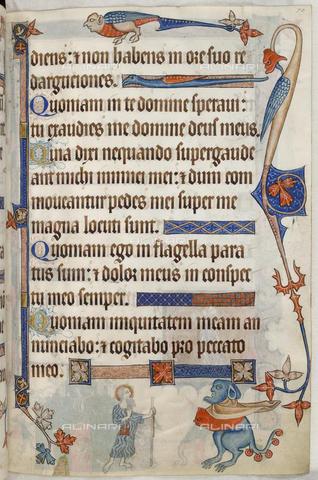 diens: ⁊ non habens in ore suo re
dargutiones.
Quoniam in te domine speraui:
tu exaudies me domine deus meus.
Quia dixi nequando supergaude
ant michi inimici mei: ⁊ dum com
moueantur pedes mei super me
magna locuti sunt.
Quoniam ego in flagella para
tus sum: ⁊ dolor meus in conspec
tu meo semper.
Quoniam iniquitatem meam an
nunciabo: ⁊ cogitabo pro peccato
meo.
ALINARI
ALINARI
ALINARI
ALINARI